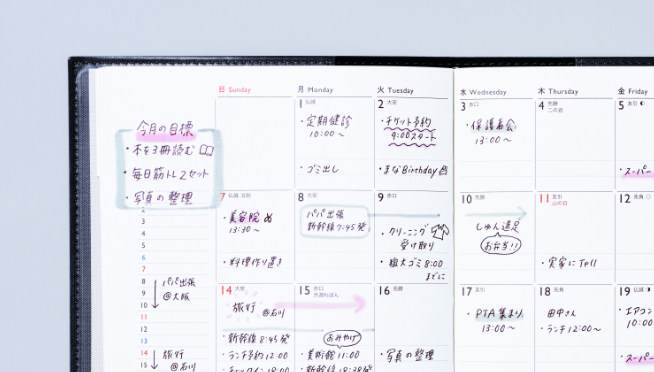 日 Sunday
月 Monday
火 Tuesday
水 Wednesday
木 Thursday
金 Friday
今月の目標
・本を3冊読む
・毎日筋トレ2セット
・写真の整理
2
3
4
5
6
7
8
9
10
11
12
13
14
15
パパ出張
@大阪
旅行
@石川
1 仏滅
・定期健診
10:00〜
・ゴミ出し
2 大安
・チケット予約
9:00スタート
・まなBirthday
3 赤口
・保護者会
13:00〜
4 先勝
5 友引
・スーパー
7 仏滅
・美容院
13:30〜
・料理作り置き
8 大安
パパ出張
新幹線7:45発
9 赤口
・クリーニング
受け取り
・粗大ゴミ8:00
までに
10 先勝
しゅん遠足
お弁当!!
11 友引
山の日
・実家にTell
12 先負
14 大安
旅行
@石川
・新幹線8:45発
・ランチ予約12:00
15 赤口
おみやげ
・美術館11:00
16 先勝
・写真の整理
17 友引
・PTA集まり
13:00〜
18 先負
田中さん
・ランチ12:00〜
19 仏滅
・エアコン
10:00
・スーパー